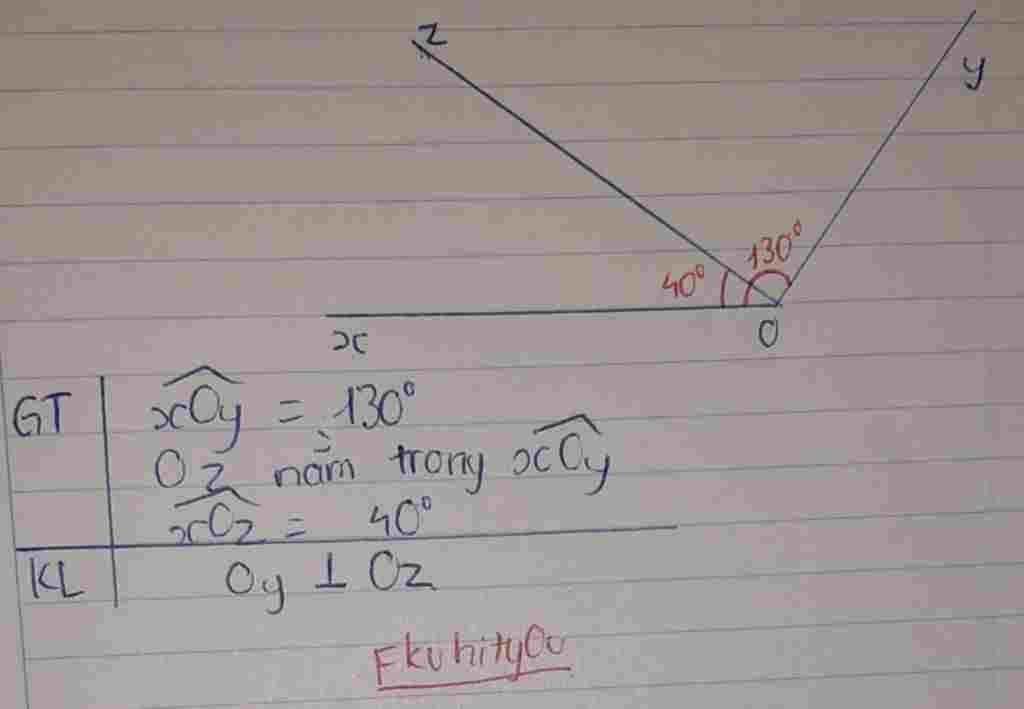 z
y
130°
40°
x
O
GT
xOy = 130°
Oz nằm trong xOy
xOz = 40°
KL
Oy ⊥ Oz